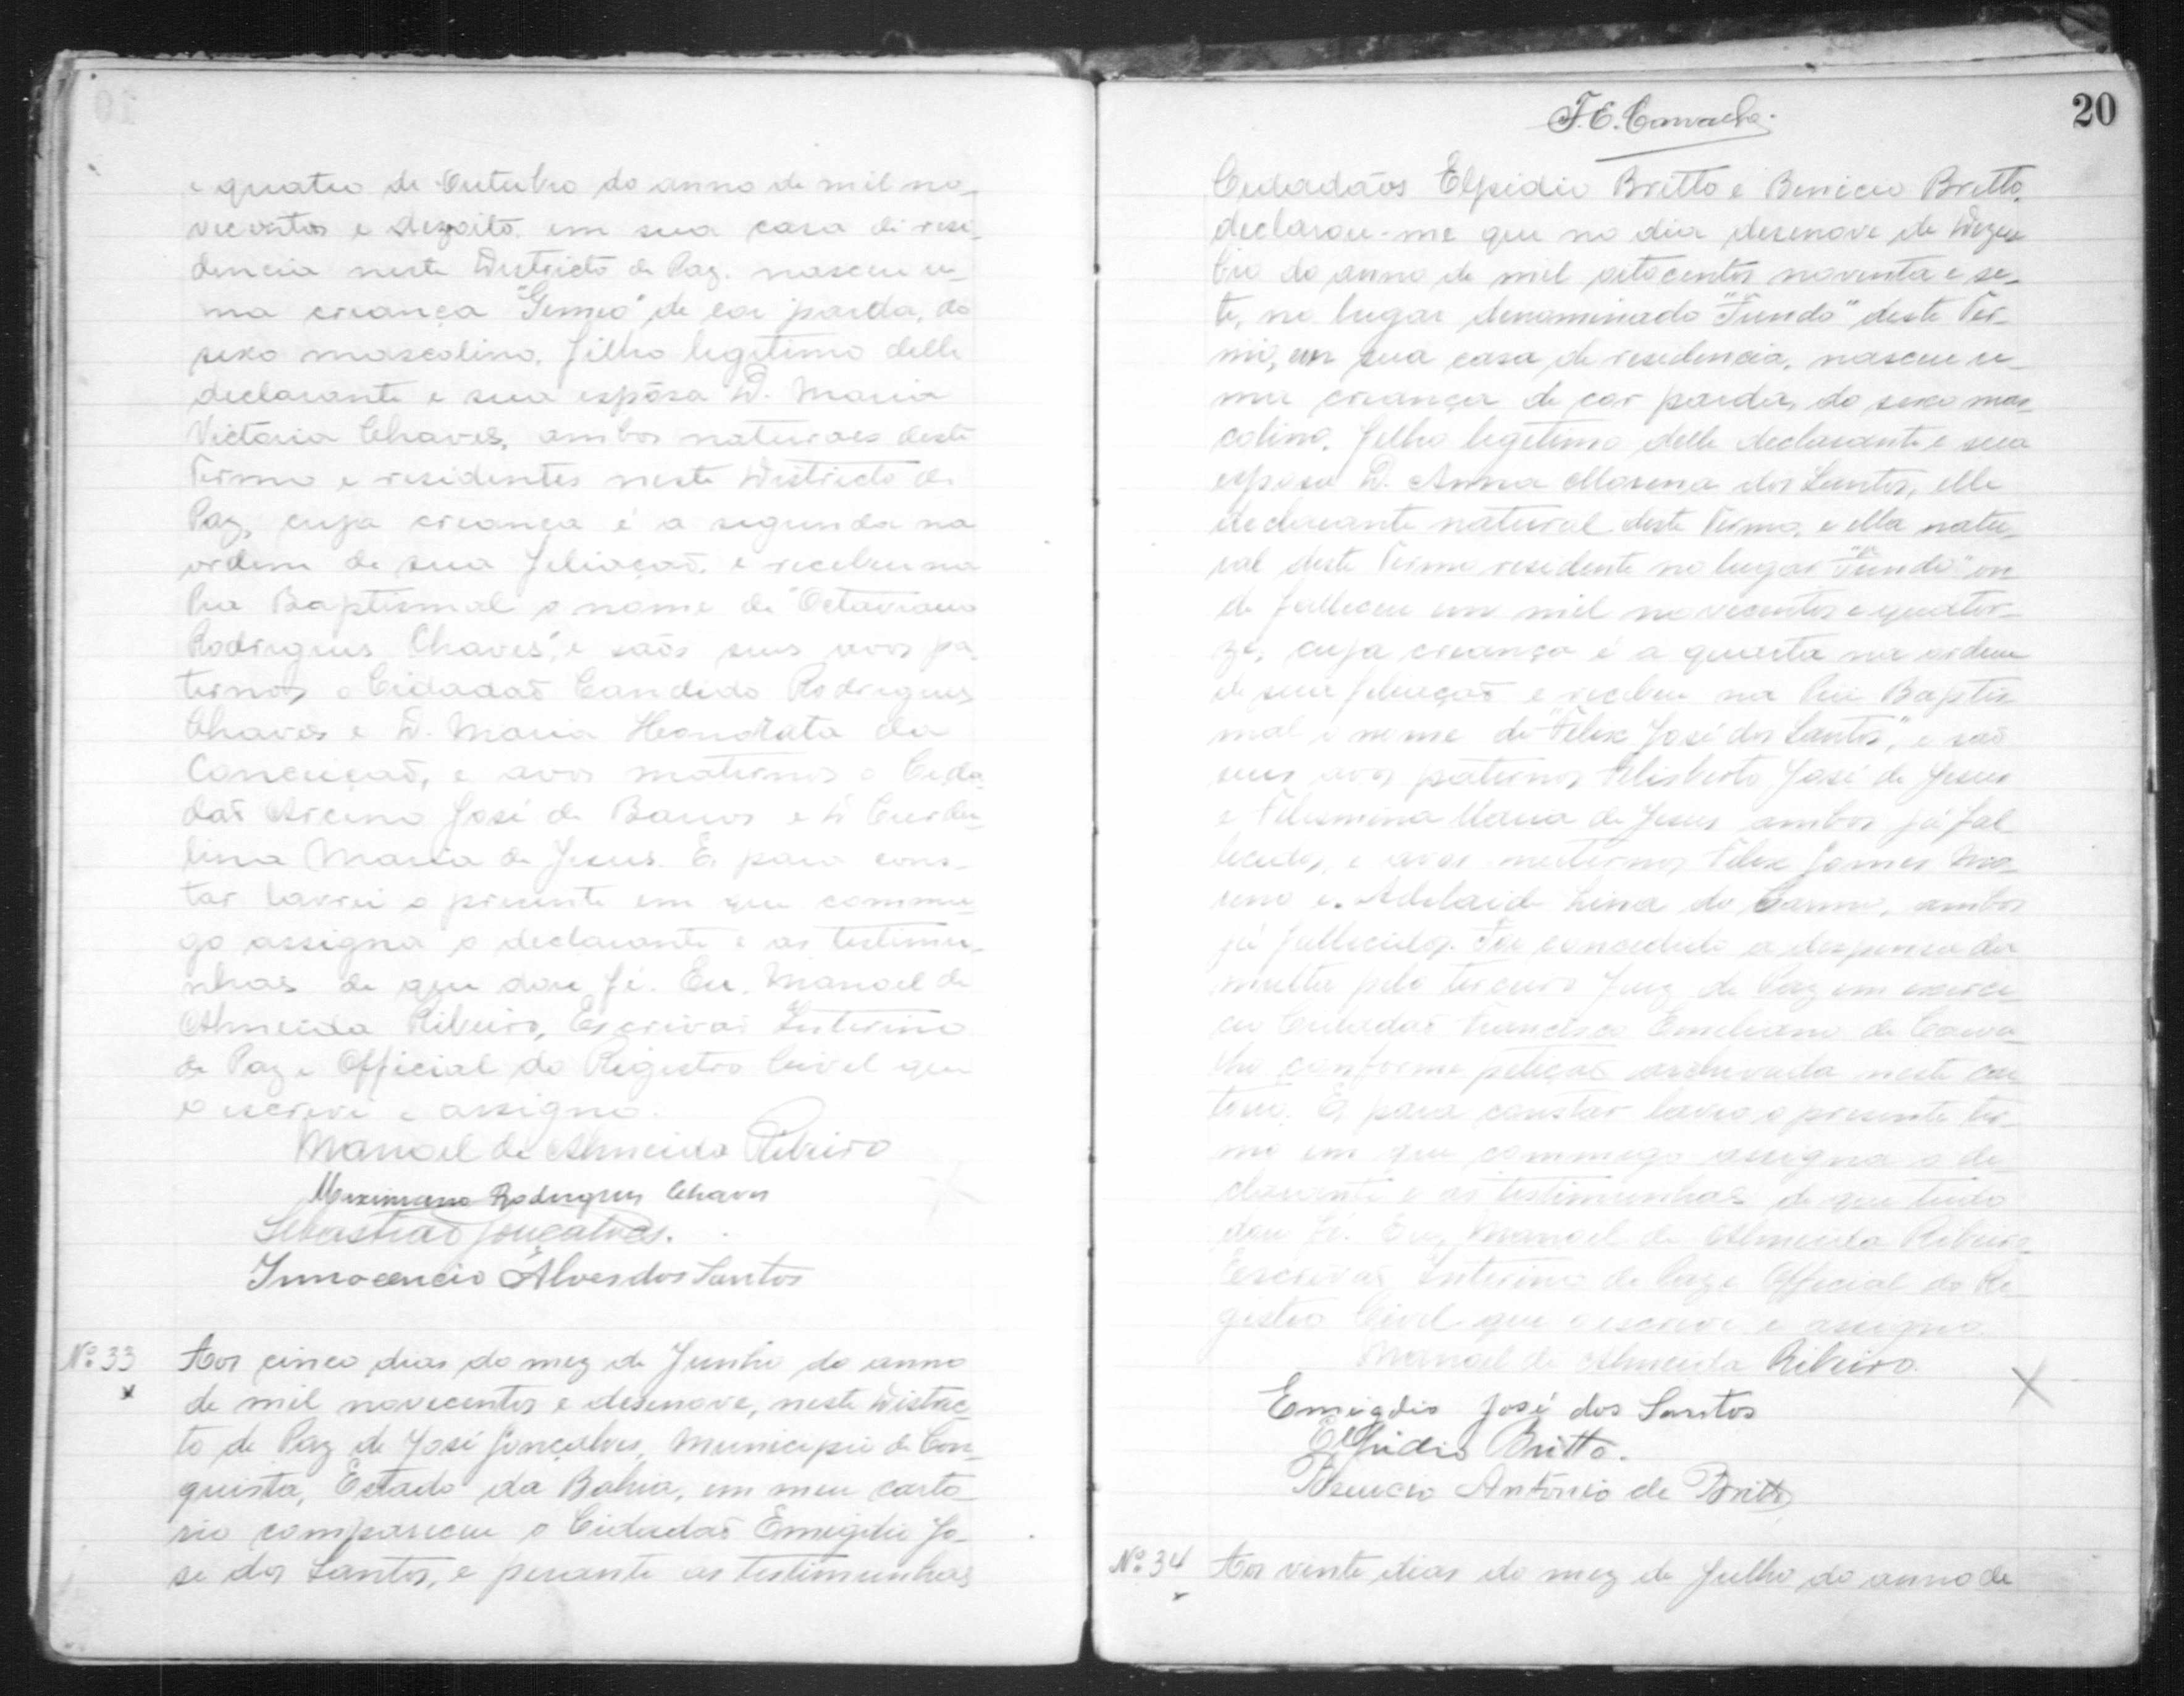 e quatro de Outubro do anno de mil no-
vecentos e dezoito, em sua casa de resi-
dencia neste Districto de Paz, nasceu u-
ma creança "Gemeo" de cor parda, do
sexo mascolino, filho legitimo delle
declarante e sua espósa D. Maria
Victoria Chaves, ambos naturaes deste
Termo e residentes neste Districto de
Paz, cuja creança é a segunda na
ordem de sua filiaçaõ, e recebeu na
Pia Baptismal o nome de "Octaviano
Rodrigues Chaves", e saõs seus avos pa-
ternos o Cidadaõ Candido Rodrigues
Chaves e D. Maria Honorata da
Conceiçaõ, e avos maternos o Cida-
daõ José de Barros e D.
lina Maria de Jesus. E, para cons-
tar lavrei o presente em que commi-
go assigna o declarante e as testimu-
nhas de que dou fé. Eu, Manoel de
Almeida Ribeiro, Escrivaõ Interino
de Paz e Official do Registro Civel que
o escrevi e assigno.
Manoel de Almeida Ribeiro
Maximiano Rodrigues Chaves
Sebastiaõ Gonçalves.
Innocencio Alves dos Santos
Nº 33 Aos cinco dias do mez de Junho do anno
de mil novecentos e desenove, neste Distric-
to de Paz de José Gonçalves, Municipio de Con-
quista, Estado da Bahia, em meu carto-
rio compareceu o Cidadaõ Emigdio Jo-
sé dos Santos, e perante as testimunhas
20
F. E. Carvalho.
Cidadaõs Elpidio Britto e Benicio Britto,
declarou-me que no dia desenove de Dezem
bro do anno de mil oitocentos noventa e se-
te, no lugar denominado "Fundo" deste Ter-
mo, em sua casa de residencia, nasceu u-
ma creança de cor parda, do sexo mas-
colino, filho legitimo delle declarante e sua
esposa D. Anna Morena dos Santos, elle
declarante natural deste Termo, e ella natu-
ral deste Termo residente no lugar "Fundo" on
de falleceu em mil novecentos e quator-
ze, cuja creança é a quarta na ordem
de sua filiaçaõ e recebeu na Pia Baptis
mal o nome de "Felix José dos Santos", e saõ
seus avos paternos Felisberto José de Jesus
e Felismina Maria de Jesus ambos já fal
lecidos, e avos maternos Felix Gomes Mo-
reno e Adelaide Lina do Carmo, ambos
já fallecidos. Foi concedido a despensa da
multa pelo terceiro Juiz de Paz em exerci
cio Cidadaõ Francisco Emiliano de Carva-
lho conforme petiçaõ archivada neste car
torio. E, para constar lavro o presente ter-
mo em que commigo assigna o de-
clarante e as testimunhas de que tudo
dou fé. Eu, Manoel de Almeida Ribeiro
Escrivaõ Interino de Paz e Official do Re-
gistro Civel que o escrevi e assigno.
Manoel de Almeida Ribeiro.
Emigdio José dos Santos
Elpidio Britto.
Benicio Antonio de Britto
Nº 34 Aos vente dias do mez de Julho do anno de